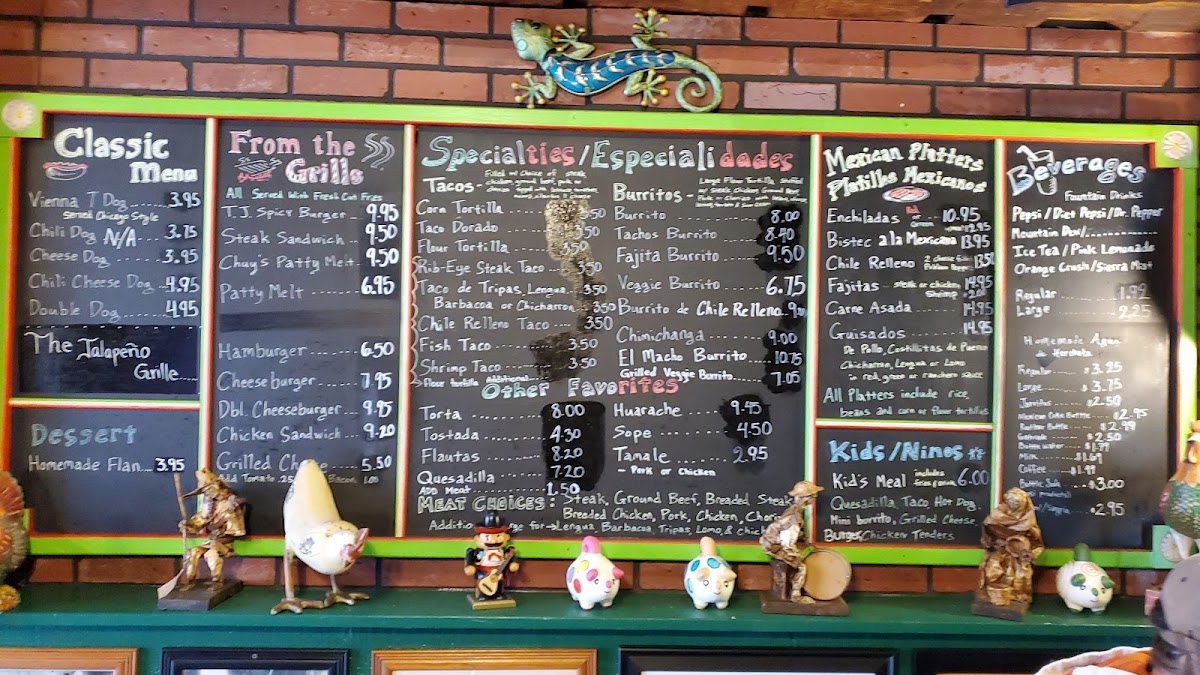 Classic
Menu
Vienna T Dog 3.95
Served Chicago Style
Chili Dog N/A 3.75
Cheese Dog 3.95
Chili Cheese Dog 4.95
Double Dog 4.95
The Jalapeño
Grille
Dessert
Homemade Flan 3.95
From the
Grills
All Served With Fresh Cut Fries
T.J. Spicy Burger 9.95
Steak Sandwich 9.50
Chuy's Patty Melt 9.50
Patty Melt 6.95
Hamburger 6.50
Cheeseburger 7.95
Dbl. Cheeseburger 9.95
Chicken Sandwich 9.20
Grilled 5.50
Add Tomato .25 Bacon 1.00
Specialties/Especialidades
Tacos-
Filled w/ choice of steak,
Corn Tortilla 3.50
Taco Dorado 3.50
Flour Tortilla 3.50
Rib-Eye Steak Taco 3.50
Taco de Tripas, Lengua
Barbacoa or Chicharron 3.50
Chile Relleno Taco 3.50
Fish Taco 3.50
Shrimp Taco 3.50
Flour tortilla Additional
Burritos-
Large Flour Tortilla stuffed
w/ Steak, Chicken, Ground Beef,
Burrito 8.00
Tachos Burrito 8.40
Fajita Burrito 9.50
Veggie Burrito 6.75
Burrito de Chile Relleno
Chimichanga 9.00
El Macho Burrito 10.75
Grilled Veggie Burrito 7.05
Other Favorites
Torta 8.00
Tostada 4.30
Flautas 8.20
Quesadilla 7.20
ADD Meat 1.50
Huarache 9.45
Sope 4.50
Tamale 2.95
- Pork or Chicken
Meat Choices: Steak, Ground Beef, Breaded Steak
Breaded Chicken, Pork, Chicken,
for Lengua, Barbacoa, Tripas, Lomo, &
Mexican Platters
Platillos Mexicanos
Enchiladas Red or Green 10.95
12.95
Bistec a la Mexicana 13.95
Chile Relleno 13.50
Fajitas steak or chicken 14.95
Shrimp
Carne Asada 14.95
Guisados 14.95
De Pollo, Costillitas de Puerco
Chicharron, Lengua or Lomo
in red, green or ranchera sauce
All Platters include rice,
beans and corn or flour tortillas
Kids/Ninos
Kid's Meal includes 6.00
Quesadilla, Taco, Hot Dog,
Mini burrito, Grilled Cheese,
Burger, Chicken Tenders
Beverages
Fountain Drinks
Pepsi/Diet Pepsi/Dr. Pepper
Mountain Dew/
Ice Tea/Pink Lemonade
Orange Crush/Sierra Mist
Regular 1.99
Large 2.25
Homemade Agua
de Horchata
Regular $3.25
Large $3.75
Jarritos $2.50
Mexican Coke Bottle $2.95
$2.99
Gatorade $2.50
Bottle Water $1.79
Milk
Coffee $1.99
$3.00
2.95